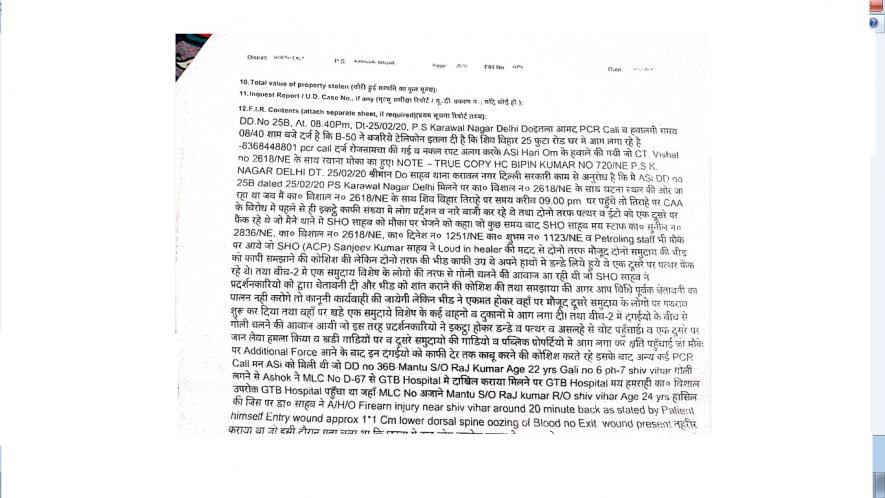 District
P.S.
Year
FIR No.
Date
10.Total value of property stolen (चोरी हुई सम्पत्ति का कुल मूल्य):
11.Inquest Report / U.D. Case No., if any (मृत्यु समीक्षा रिपोर्ट / यू.डी. प्रकरण न., यदि कोई हो):
12.F.I.R. Contents (attach separate sheet, if required)(प्रथम सूचना रिपोर्ट तथ्य):
DD.No 25B, At. 08.40Pm, Dt-25/02/20, P.S Karawal Nagar Delhi Doइतला आमद PCR Call व हवालगी समय
08/40 शाम बजे दर्ज है कि B-50 ने बजरिये टेलिफोन इतला दी है कि शिव विहार 25 फुटा रोड घर मे आग लगा रहे है
-8368448801 pcr call दर्ज रोजनामचा की गई व नकल रपट अलग करके ASi Hari Om के हवाले की गयी जो CT. Vishal
no 2618/NE के साथ रवाना मोका का हुए। NOTE – TRUE COPY HC BIPIN KUMAR NO 720/NE P.S K.
NAGAR DELHI DT. 25/02/20 श्रीमान Do साहब थाना करावल नगर दिल्ली सरकारी काम से अनुरोध है कि मै ASi DD no
25B dated 25/02/20 PS Karawal Nagar Delhi मिलने पर का० विशाल न० 2618/NE के साथ घटना स्थल की ओर जा
रहा था जब मै का० विशाल न० 2618/NE के साथ शिव विहार तिराहे पर समय करीव 09.00 pm पर पहुँचे तो तिराहे पर CAA
के विरोध मे पहले से ही इकट्ठे काफी संख्या मे लोग प्रर्दशन व नारे बाजी कर रहे थे तथा दोनो तरफ पत्थर व ईटो को एक दूसरे पर
फैंक रहे थे जो मैने थाने मे SHO साहब को मौका पर भेजने को कहा। जो कुछ समय बाद SHO साहब मय स्टाफ का० सुनील न०
2836/NE, का० विशाल न० 2618/NE, का० दिनेश न० 1251/NE का० शुभम न० 1123/NE व Petroling staff भी मौके
पर आये जो SHO (ACP) Sanjeev Kumar साहब ने Loud in healer की मदद से दोनो तरफ मौजूद दोनो समुदाय की भीड
को कापी समझाने की कोशिश की लेकिन दोनो तरफ की भीड काफी उग्र थे अपने हाथों मे डन्डे लिये हुये थे एक दूसरे पर पत्थर फेंक
रहे थे। तथा बीच-2 मे एक समुदाय विशेष के लोगो की तरफ से गोली चलने की आवाज आ रही थी जो SHO साहब ने
प्रदर्शनकारियो को द्वारा चेतावनी दी और भीड को शांत कराने की कोशिश की तथा समझाया की अगर आप विधि पूर्वक चेतावनी का
पालन नही करोगे तो कानूनी कार्यवाही की जायेगी लेकिन भीड ने एकमत होकर वहाँ पर मौजूद दूसरे समुदाय के लोगो पर पथराव
शुरू कर दिया तथा वहाँ पर खडे एक समुदाये विशेष के कई वाहनो व दुकानों मे आग लगा दी। तथा बीच-2 में दंगईयो के बीच से
गोली चलने की आवाज आयी जो इस तरह प्रदर्शनकारियो ने इकट्ठा होकर डन्डे व पत्थर व असलहे से चोट पहुँचाई। व एक दूसरे पर
जान लेवा हमला किया व खडी गाडियों पर व दूसरे समुदायो की गाडियो व पब्लिक प्रोपर्टियो मे आग लगा कर क्षति पहुँचाई जो मौके
पर Additional Force आने के बाद इन दंगईयो को काफी देर तक काबू करने की कोशिश करते रहे इसके बाद अन्य कई PCR
Call मन ASi को मिली थी जो DD no 36B Mantu S/O RAJ Kumar Age 22 yrs Gali no 6 ph-7 shiv vihar गोली
लगने से Ashok ने MLC No D-67 से GTB Hospital मे दाखिल कराया मिलने पर GTB Hospital मय हमराही का० विशाल
उपरोक्त GTB Hospital पहुँचा था जहाँ MLC No अजाने Mantu S/O RaJ kumar R/O shiv vihar Age 24 yrs हासिल
की जिस पर डा० साहब ने A/H/O Firearn injury near shiv vihar around 20 minute back as stated by Patient
himself Entry wound approx 1*1 Cm lower dorsal spine oozing of Blood no Exit wound present तहरीर